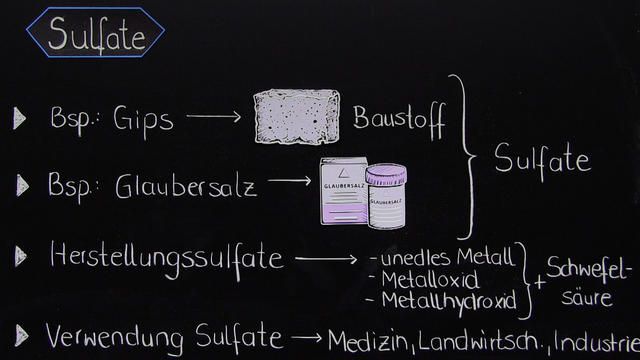 Sulfate
Bsp.: Gips → Baustoff
Bsp.: Glaubersalz →
GLAUBERSALZ
GLAUBERSALZ
Sulfate
Herstellungssulfate → - unedles Metall
- Metalloxid
- Metallhydroxid
+ Schwefel-
säure
Verwendung Sulfate → Medizin, Landwirtsch., Industrie